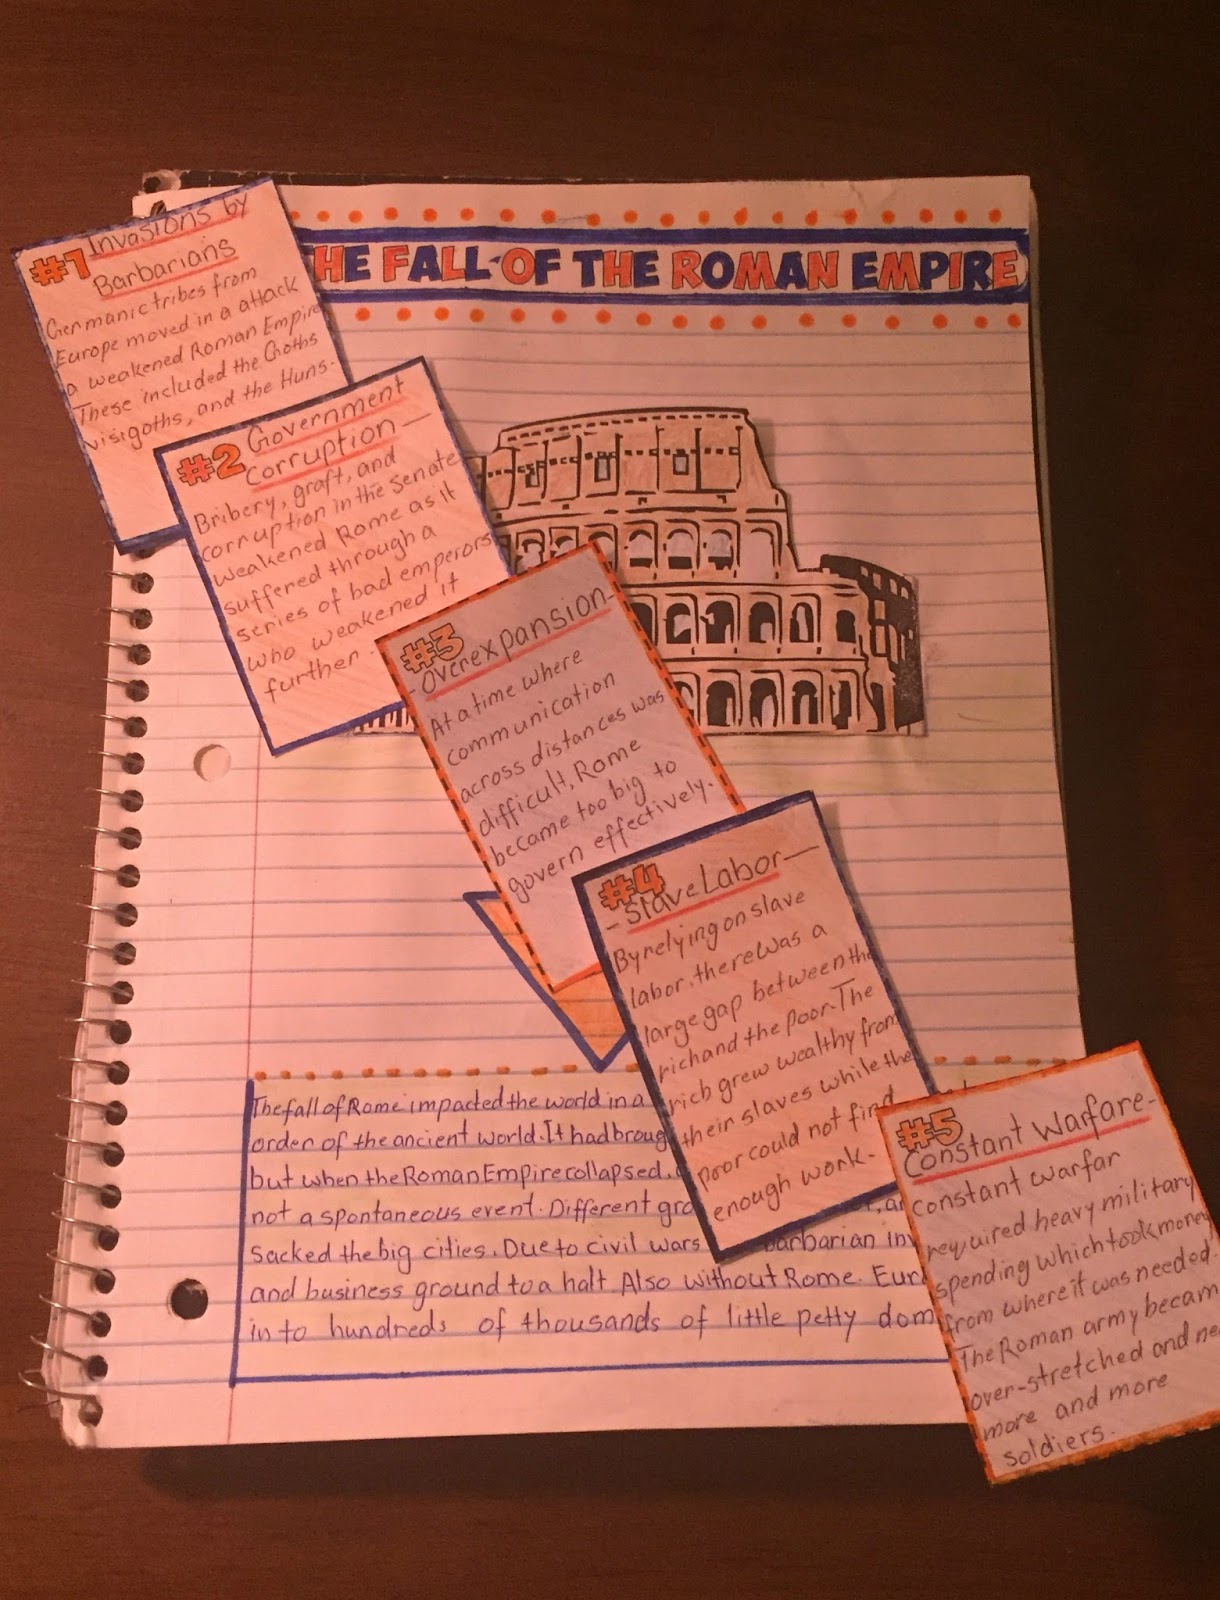 THE FALL OF THE ROMAN EMPIRE
#1 Invasions by
Barbarians
Germanic tribes from
Europe moved in a attack
a weakened Roman Empire
These included the Goths
visigoths, and the Huns.
#2 Government
corruption
Bribery, graft, and
corruption in the Senate
weakened Rome as it
suffered through a
series of bad emperors
who weakened it
further.
#3
Overexpansion
At a time where
communication
across distances was
difficult, Rome
became too big to
govern effectively.
#4
Slave Labor
By relying on slave
labor, there was a
large gap between the
rich and the poor. The
rich grew wealthy from
their slaves while the
poor could not find
enough work.
#5
Constant Warfare
constant warfar
required heavy military
spending which took money
from where it was needed.
The Roman army becam
over-stretched and ne
more and more
soldiers.
The fall of Rome impacted the world in a
order of the ancient world. It had broug
but when the Roman Empire collapsed,
not a spontaneous event. Different gro
sacked the big cities. Due to civil wars barbarian inv
and business ground to a halt. Also without Rome. Eur
in to hundreds of thousands of little petty dom